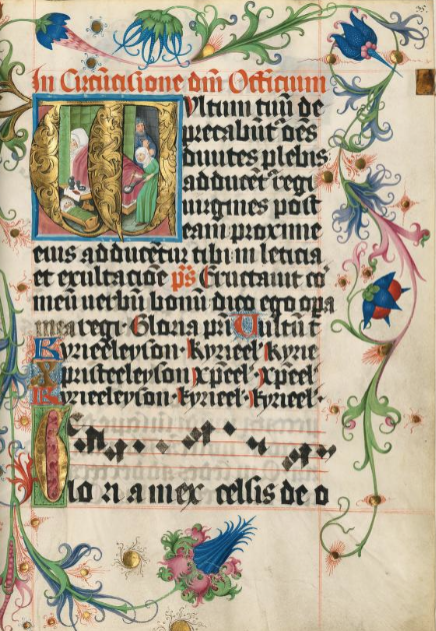 35.
In Circūcisione dm̄ Officium
Vltum tuū de
precabūt᷑ om̄s
diuites plebis
adducēt᷑ regi
uirgines post
eam proxime
eius adducētur tibi in leticia
et exultacioē ps̄ Eructauit co᷑
meū uerbū bonū dico ego opa
mea regi Gloria pri Uultū t
Kyrieeleyson kyrieel kyrie
Xpisteeleyson xpēel xpēel
Kyrieeleyson kyrieel kyrieel
Glo ri a in ex celsis de o